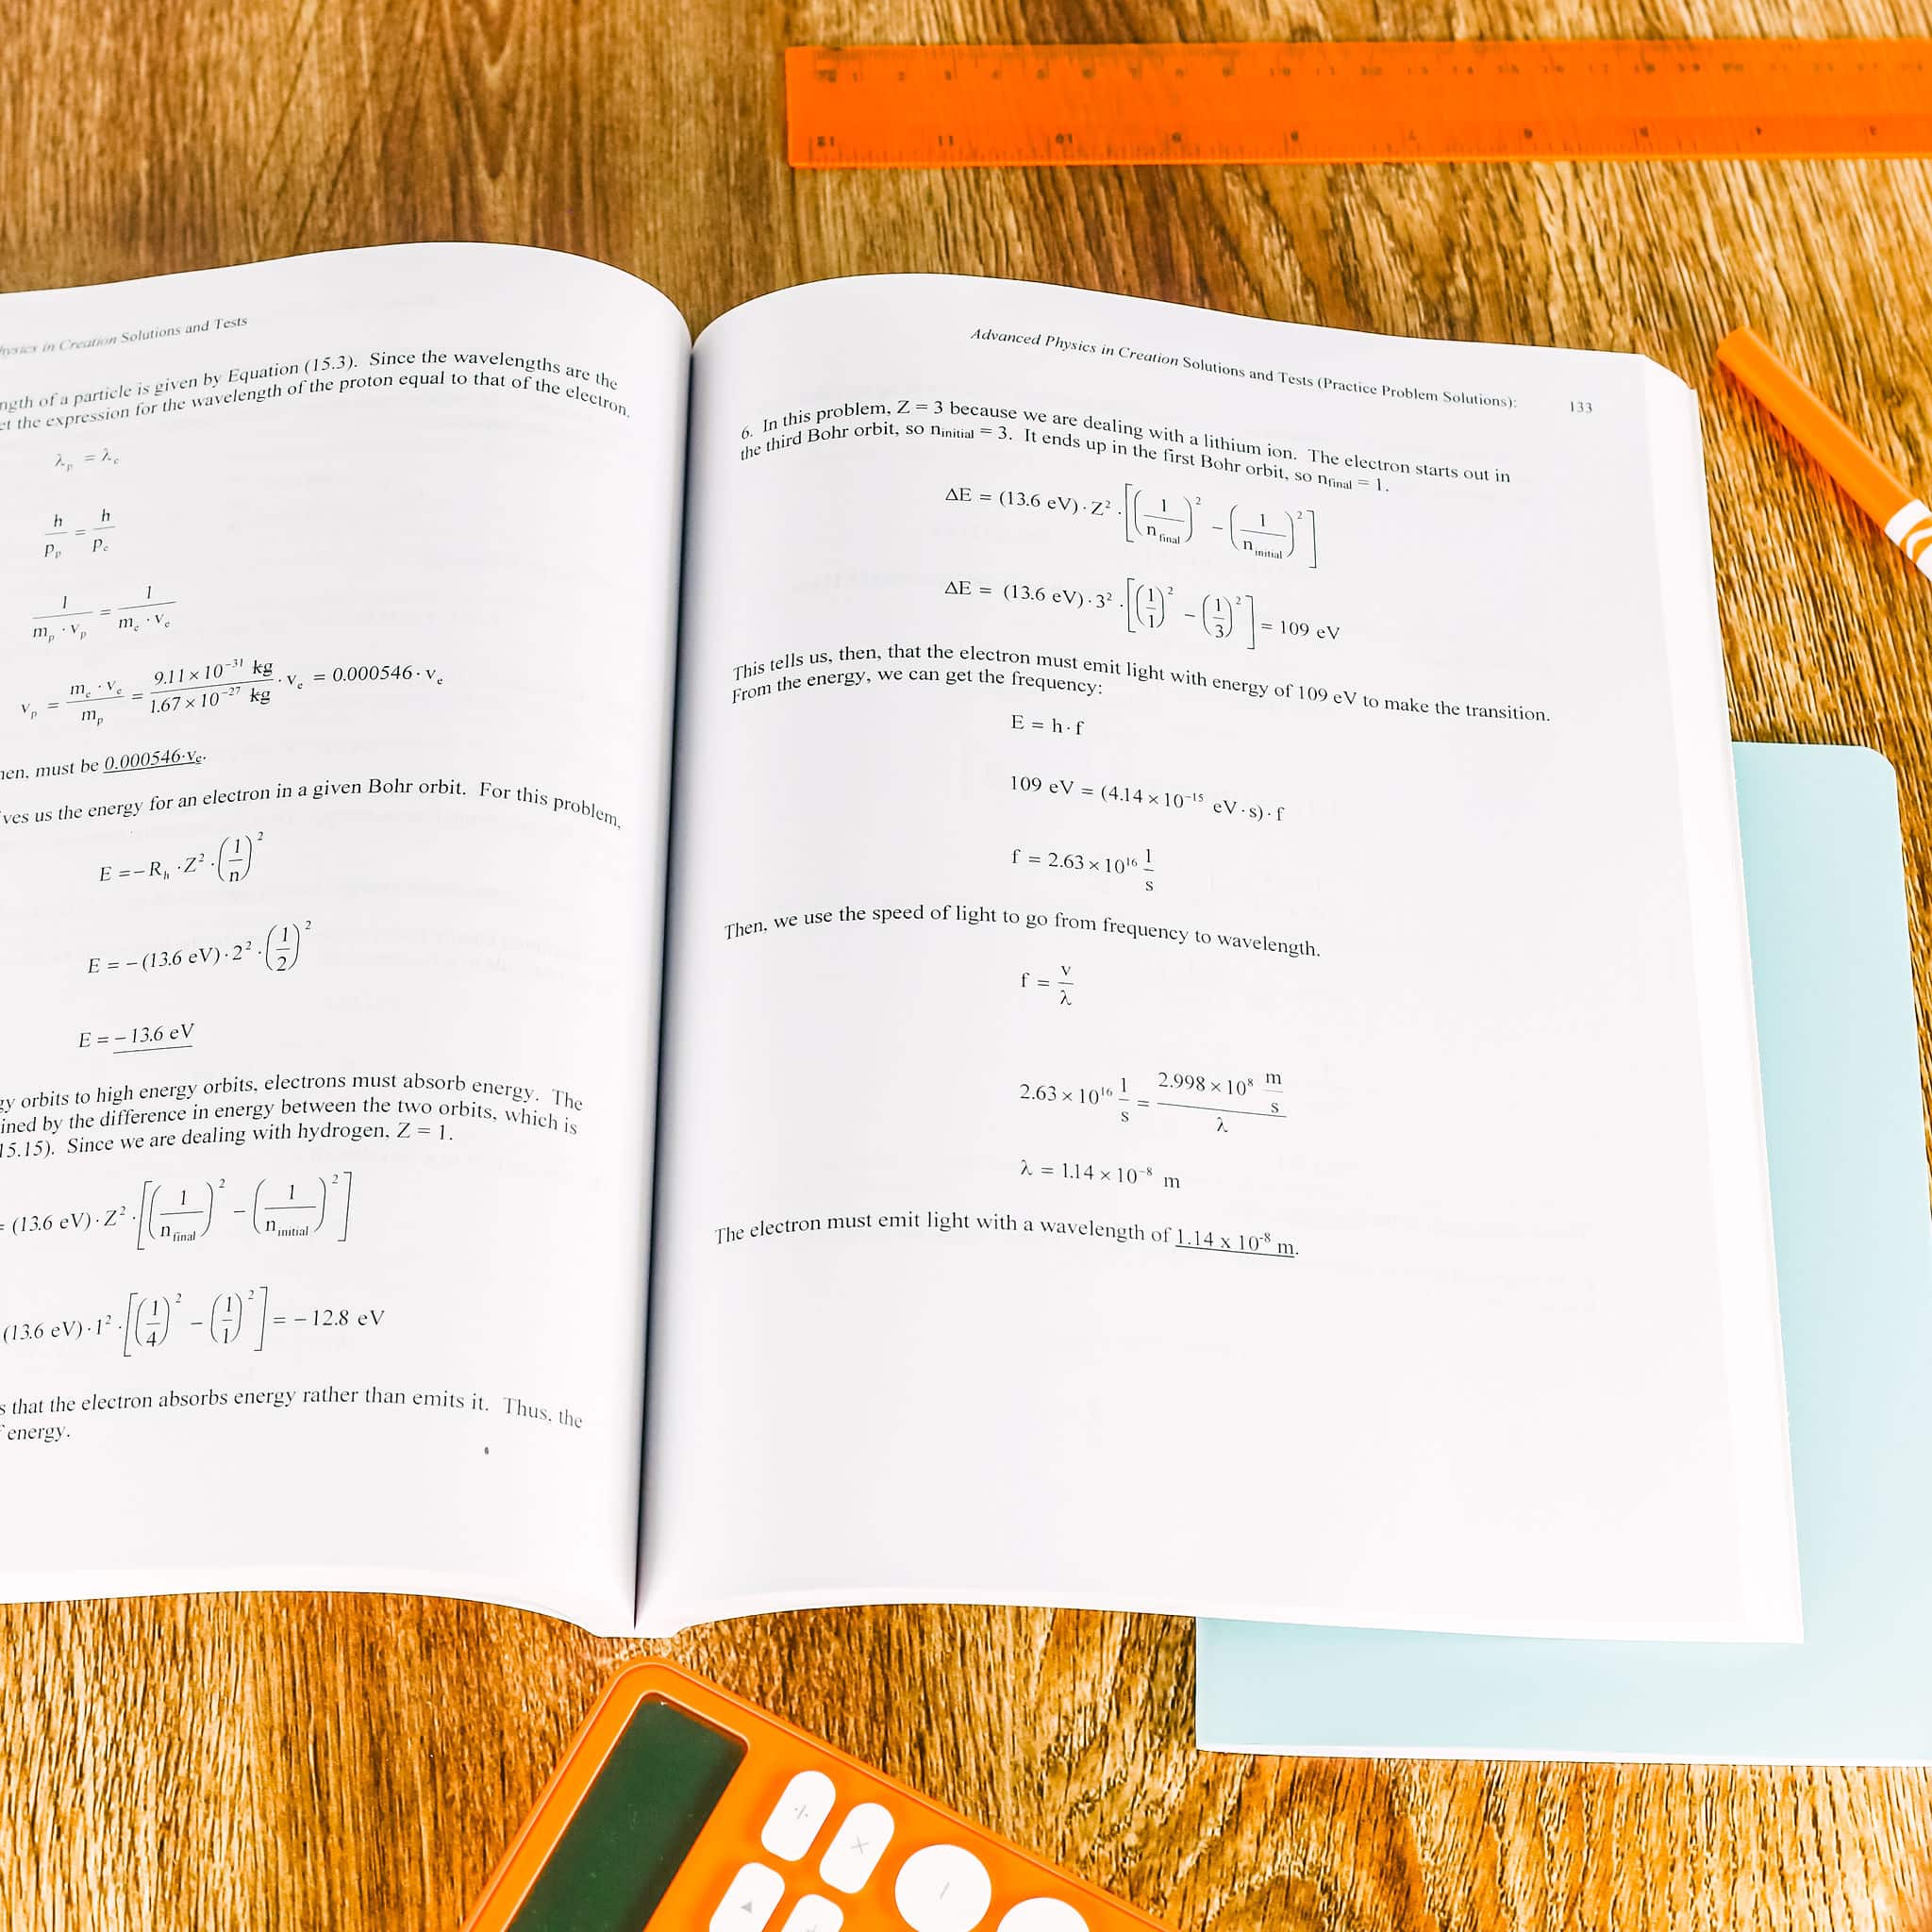 Physics in Creation Solutions and Tests
of a particle is given by Equation (15.3). Since the wavelengths are the
the expression for the wavelength of the proton equal to that of the electron.
λp = λe
h/pp = h/pe
1/(mp · vp) = 1/(me · ve)
vp = (me · ve)/mp = (9.11 × 10⁻³¹ kg)/(1.67 × 10⁻²⁷ kg) · ve = 0.000546 · ve
must be 0.000546·ve.
us the energy for an electron in a given Bohr orbit. For this problem,
E = −Rh · Z² · (1/n)²
E = −(13.6 eV) · 2² · (1/2)²
E = −13.6 eV
orbits to high energy orbits, electrons must absorb energy. The
by the difference in energy between the two orbits, which is
15.15). Since we are dealing with hydrogen, Z = 1.
= (13.6 eV) · Z² · [(1/nfinal)² − (1/ninitial)²]
(13.6 eV) · 1² · [(1/4)² − (1/1)²] = −12.8 eV
that the electron absorbs energy rather than emits it. Thus, the
energy.
Advanced Physics in Creation Solutions and Tests (Practice Problem Solutions): 133
6. In this problem, Z = 3 because we are dealing with a lithium ion. The electron starts out in
the third Bohr orbit, so ninitial = 3. It ends up in the first Bohr orbit, so nfinal = 1.
ΔE = (13.6 eV) · Z² · [(1/nfinal)² − (1/ninitial)²]
ΔE = (13.6 eV) · 3² · [(1/1)² − (1/3)²] = 109 eV
This tells us, then, that the electron must emit light with energy of 109 eV to make the transition.
From the energy, we can get the frequency:
E = h · f
109 eV = (4.14 × 10⁻¹⁵ eV · s) · f
f = 2.63 × 10¹⁶ 1/s
Then, we use the speed of light to go from frequency to wavelength.
f = v/λ
2.63 × 10¹⁶ 1/s = (2.998 × 10⁸ m/s)/λ
λ = 1.14 × 10⁻⁸ m
The electron must emit light with a wavelength of 1.14 x 10⁻⁸ m.